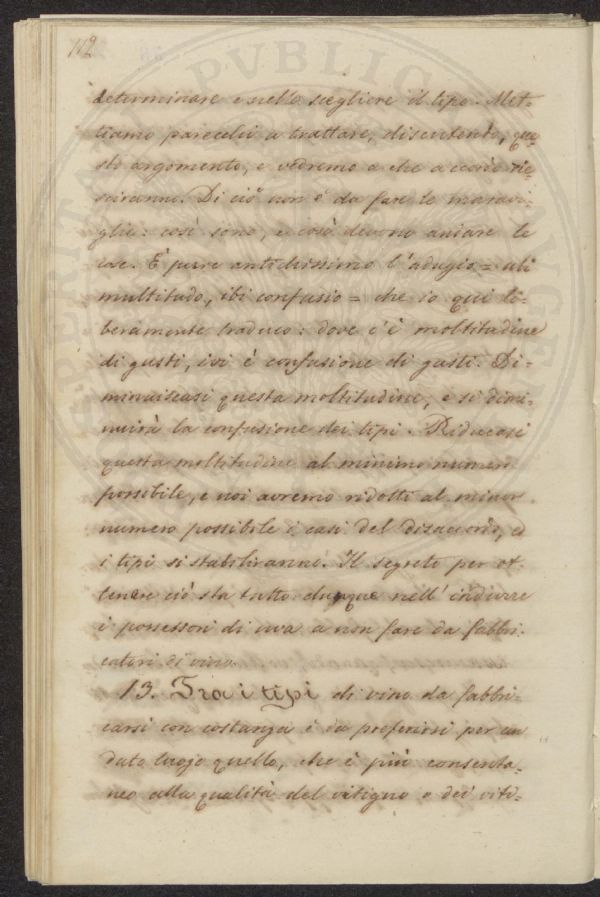 112
determinare e nello scegliere il tipo. Met-
tiamo parecchi a trattare, discutendo, que-
sto argomento, e vedremo a che accordo rie-
sciranno. Di ciò non è da fare le maravi-
glie: così sono, e così devono andare le
cose. È pure antichissimo l'adagio = ubi
multitudo, ibi confusio = che io qui li-
beramente traduco: dove c'è moltitudine
di gusti, ivi è confusione di gusti. Di-
minuiscasi questa moltitudine, e si dimi-
nuirà la confusione dei tipi. Riducasi
questa moltitudine al minimo numero
possibile, e noi avremo ridotti al minor
numero possibile i casi del disaccordo, ed
i tipi si stabiliranno. Il segreto per ot-
tenere ciò sta tutto dunque nell'indurre
i possessori di uva a non fare da fabbri-
catori di vino.
13. Tra i tipi di vino da fabbri-
carsi con costanza è da preferirsi per un
dato luogo quello, che è più consenta-
neo alla qualità del vitigno o dei viti-